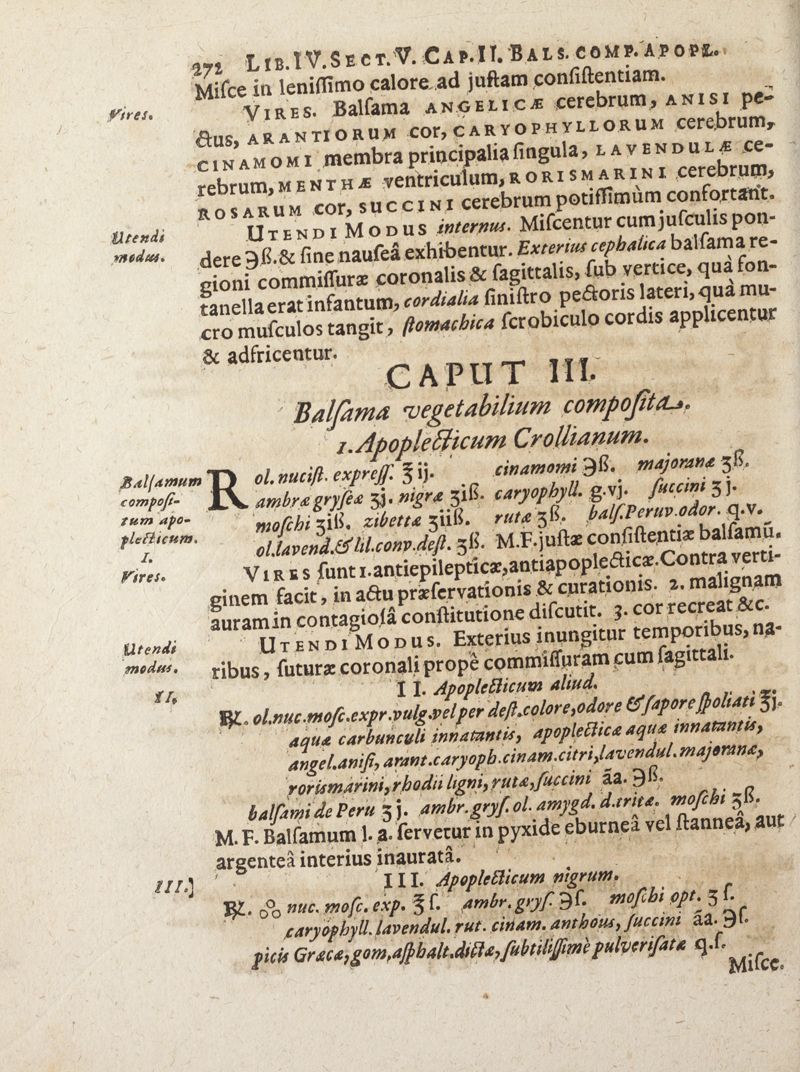 272 LIB.IV.SECT.V. CAP.II. BALS. COMP. APOPL.
Miſce in leniſſimo calore ad juſtam conſiſtentiam.
Vires.
VIRES. Balſama ANGELICÆ cerebrum, ANISI pe-
ctus, ARANTIORUM cor, CARYOPHYLLORUM cerebrum,
CINAMOMI membra principalia ſingula, LAVENDULÆ ce-
rebrum, MENTHÆ ventriculum, RORISMARINI cerebrum,
ROSARUM cor, SUCCINI cerebrum potiſſimùm confortant.
Utendi
modus.
UTENDI MODUS internus. Miſcentur cum juſculis pon-
dere ℈ß. & ſine nauſeâ exhibentur. Exterius cephalica balſama re-
gioni commiſſuræ coronalis & ſagittalis, ſub vertice, quà fon-
tanella erat infantum, cordialia ſiniſtro pectoris lateri, quà mu-
cro muſculos tangit, ſtomachica ſcrobiculo cordis applicentur
& adfricentur.
CAPUT III.
Balſama vegetabilium compoſita.
1. Apoplecticum Crollianum.
Balſamum
compoſi-
tum apo-
plecticum.
I.
R ol. nuciſt. expreſſ. ℥ ij. cinamomi ℈ß. majoranæ ʒß.
ambræ gryſeæ ʒj. nigræ ʒiß. caryophyll. g.vj. ſuccini ʒ j.
moſchi ʒiß. zibettæ ʒiiß. rutæ ʒß. balſ. Peruv. odor. q.v.
ol. lavend. & lil. conv. deſt. ʒß. M.F. juſtæ conſiſtentiæ balſamū.
Vires.
VIRES ſunt 1. antiepilepticæ, antiapoplecticæ. Contra verti-
ginem facit, in actu præſervationis & curationis. 2. malignam
auram in contagioſâ conſtitutione diſcutit. 3. cor recreat &c.
Utendi
modus.
UTENDI MODUS. Exterius inungitur temporibus, na-
ribus, ſuturæ coronali propè commiſſuram cum ſagittali.
II.
II. Apoplecticum aliud.
℞. ol. nuc. moſc. expr. vulg. vel per deſt. colore, odore & ſapore ſpoliati ℥j.
aquæ carbunculi innatantis, apoplecticæ aquæ innatantis,
angel. aniſi, arant. caryoph. cinam. citri, lavendul. majoranæ,
rorismarini, rhodii ligni, rutæ, ſuccini āā. ℈ß.
balſami de Peru ʒ j. ambr. gryſ. ol. amygd. d. tritæ. moſchi ʒß.
M. F. Balſamum l. a. ſervetur in pyxide eburneâ vel ſtanneâ, aut
argenteâ interius inauratâ.
III.]
III. Apoplecticum nigrum.
℞. nuc. moſc. exp. ℥ ſ. ambr. gryſ. ℈ſ. moſchi opt. ʒ ſ.
caryophyll. lavendul. rut. cinam. anthous, ſuccini āā. ℈ſ.
picis Græcæ, gom. aſphalt. dictæ, ſubtiliſſimè pulveriſatæ q.ſ.
Miſce.